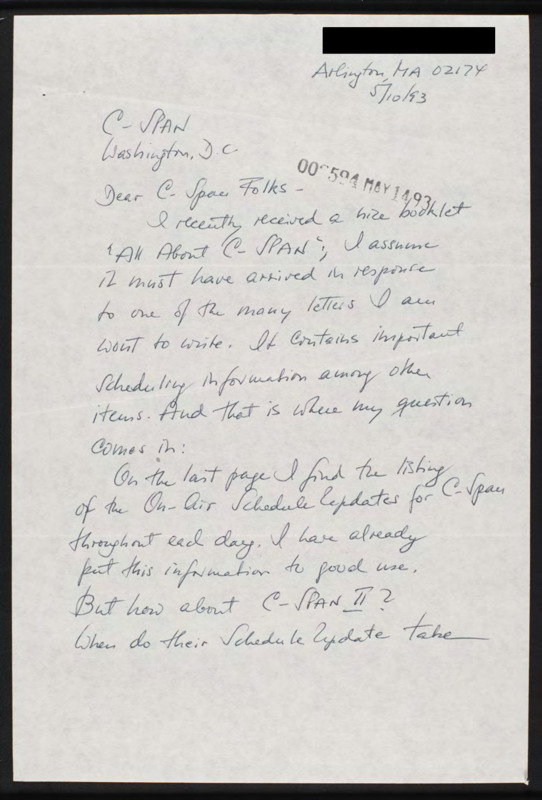 Arlington, MA 02174
5/10/93
C-SPAN
Washington, D.C.
594 MAY 14 93
Dear C-Span Folks -
I recently received a nice booklet
"All About C-SPAN"; I assume
it must have arrived in response
to one of the many letters I am
wont to write. It contains important
scheduling information among other
items. And that is where my question
comes in:
On the last page I find the listing
of the On-Air Schedule Updates for C-Span
throughout each day. I have already
put this information to good use.
But how about C-SPAN II?
When do their Schedule Update take